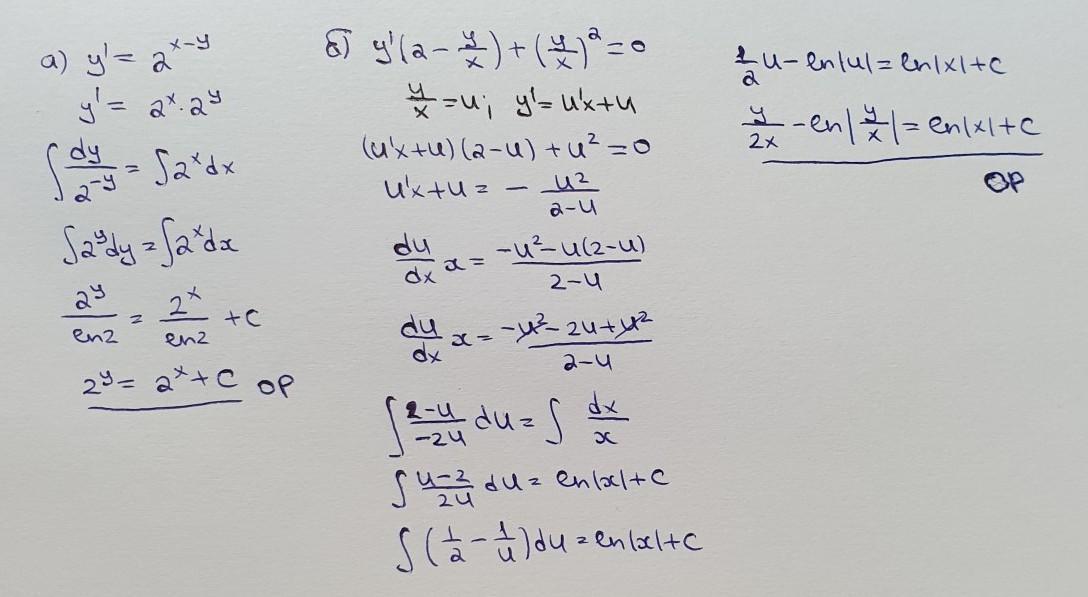 а) y' = 2^(x-y)
y' = 2^x · 2^y
∫ dy/2^(-y) = ∫ 2^x dx
∫ 2^y dy = ∫ 2^x dx
2^y/ln2 = 2^x/ln2 + C
2^y = 2^x + C ОР
б) y'(2 - y/x) + (y/x)^2 = 0
y/x = u; y' = u'x + u
(u'x + u)(2 - u) + u^2 = 0
u'x + u = - u^2/(2-u)
du/dx x = (-u^2 - u(2-u))/(2-u)
du/dx x = (-u^2 - 2u + u^2)/(2-u)
∫ (2-u)/(-2u) du = ∫ dx/x
∫ (u-2)/(2u) du = ln|x| + C
∫ (1/2 - 1/u) du = ln|x| + C
1/2 u - ln|u| = ln|x| + C
y/(2x) - ln|y/x| = ln|x| + C
ОР